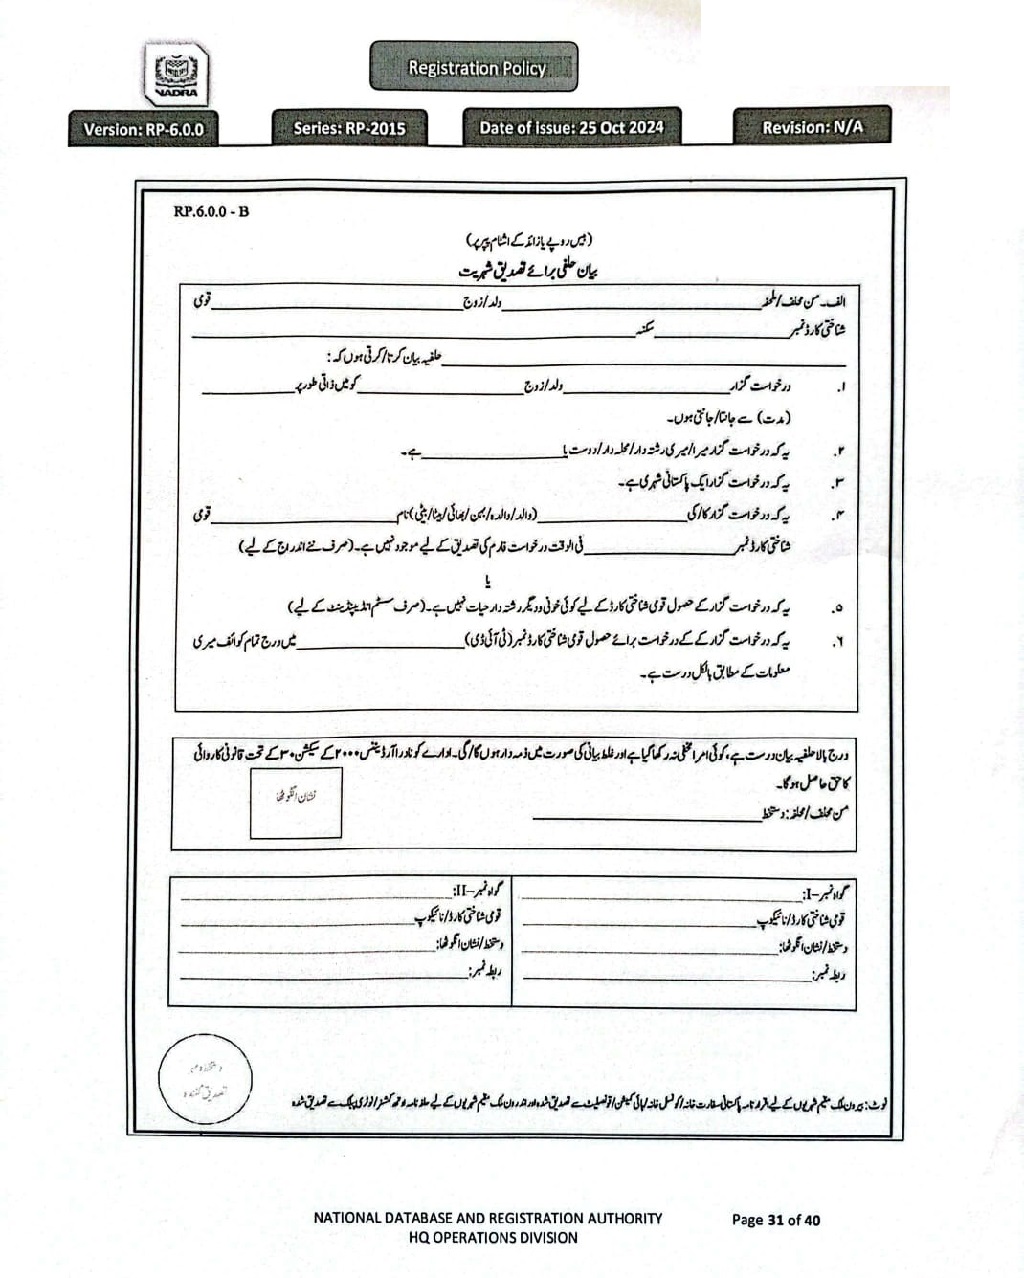 NADRA
Registration Policy
Version: RP-6.0.0
Series: RP-2015
Date of Issue: 25 Oct 2024
Revision: N/A
RP.6.0.0 - B
(بیس روپے یا زائد کے اشٹام پیپر پر)
بیان حلفی برائے تصدیق شہریت
الف۔ من محلف/محلفہ ولد/زوج قومی
شناختی کارڈ نمبر سکنہ
حلفیہ بیان کرتا/کرتی ہوں کہ:
۱. درخواست گزار ولد/زوج کو میں ذاتی طور پر
(مدت) سے جانتا/جانتی ہوں۔
۲. یہ کہ درخواست گزار میرا/میری رشتہ دار/محلہ دار/دوست یا ہے۔
۳. یہ کہ درخواست گزار ایک پاکستانی شہری ہے۔
۴. یہ کہ درخواست گزار کا/کی (والد/والدہ/بہن/بھائی/بیٹا/بیٹی) نام قومی
شناختی کارڈ نمبر فی الوقت درخواست فارم کی تصدیق کے لیے موجود نہیں ہے۔ (صرف نئے اندراج کے لیے)
یا
۵. یہ کہ درخواست گزار کے حصول قومی شناختی کارڈ کے لیے کوئی خونی و دیگر رشتہ دار حیات نہیں ہے۔ (صرف سسٹم انڈیپینڈینٹ کے لیے)
۶. یہ کہ درخواست گزار کے کے درخواست برائے حصول قومی شناختی کارڈ نمبر (ٹی آئی ڈی) میں درج تمام کوائف میری
معلومات کے مطابق بالکل درست ہے۔
درج بالا حلفیہ بیان درست ہے، کوئی امر مخفی نہ رکھا گیا ہے اور غلط بیانی کی صورت میں ذمہ دار ہوں گا/گی۔ ادارے کو نادرا آرڈیننس ۲۰۰۰ کے سیکشن ۳۰ کے تحت قانونی کاروائی
کا حق حاصل ہو گا۔
نشان انگوٹھا
من محلف/محلفہ: دستخط
گواہ نمبر–I:
قومی شناختی کارڈ/نائیکوپ
دستخط/نشان انگوٹھا:
رابطہ نمبر:
گواہ نمبر–II:
قومی شناختی کارڈ/نائیکوپ
دستخط/نشان انگوٹھا:
رابطہ نمبر:
دستخط و مہر
تصدیق کنندہ
نوٹ: بیرون ملک مقیم شہریوں کے لیے اقرار نامہ پاکستانی سفارت خانہ/کونسل خانہ/ہائی کمیشن/قونصلیٹ سے تصدیق شدہ اور اندرون ملک مقیم شہریوں کے لیے حلف نامہ اوتھ کمشنر/نوٹری پبلک سے تصدیق شدہ
NATIONAL DATABASE AND REGISTRATION AUTHORITY
HQ OPERATIONS DIVISION
Page 31 of 40